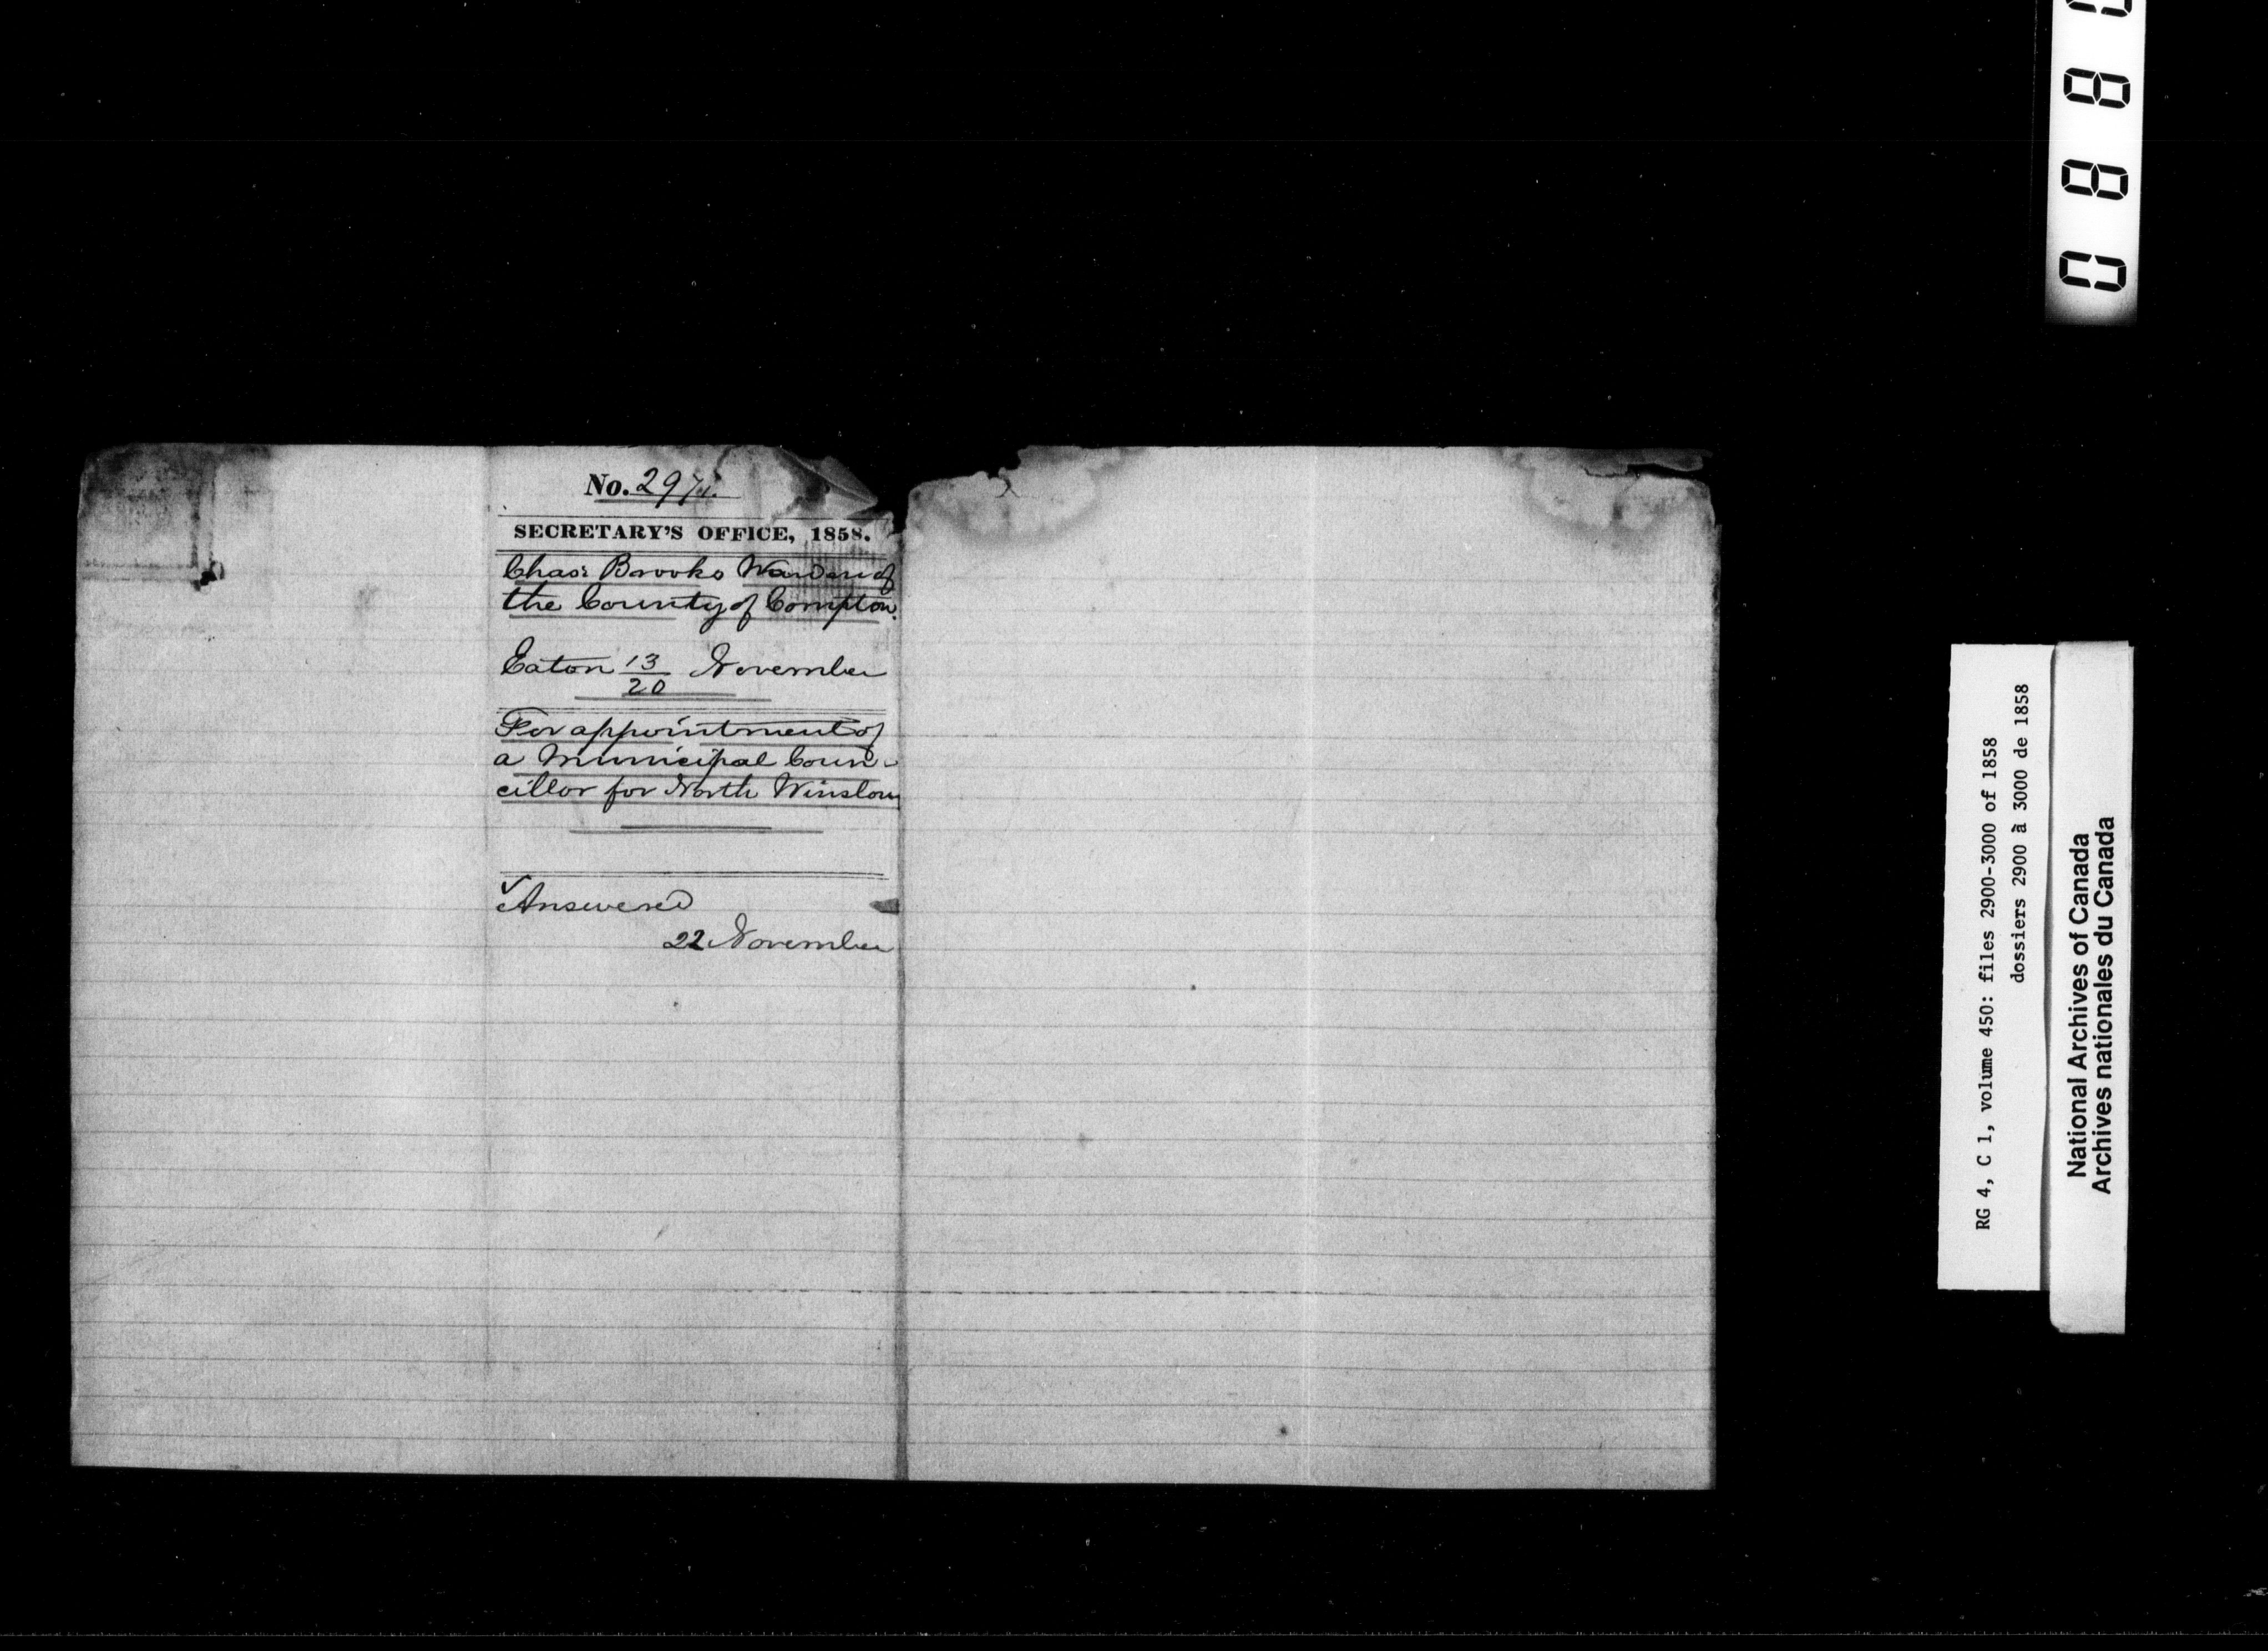 No.
SECRETARY'S OFFICE, 1858.
Chas: Brooks Warden of
the County of Compton.
Eaton 13/20 November
For appointment of
a Municipal Coun-
cillor for North Winslow
✓ Answered
22 November
RG 4, C 1, volume 450: files 2900-3000 of 1858
dossiers 2900 à 3000 de 1858
National Archives of Canada
Archives nationales du Canada
0 8 8